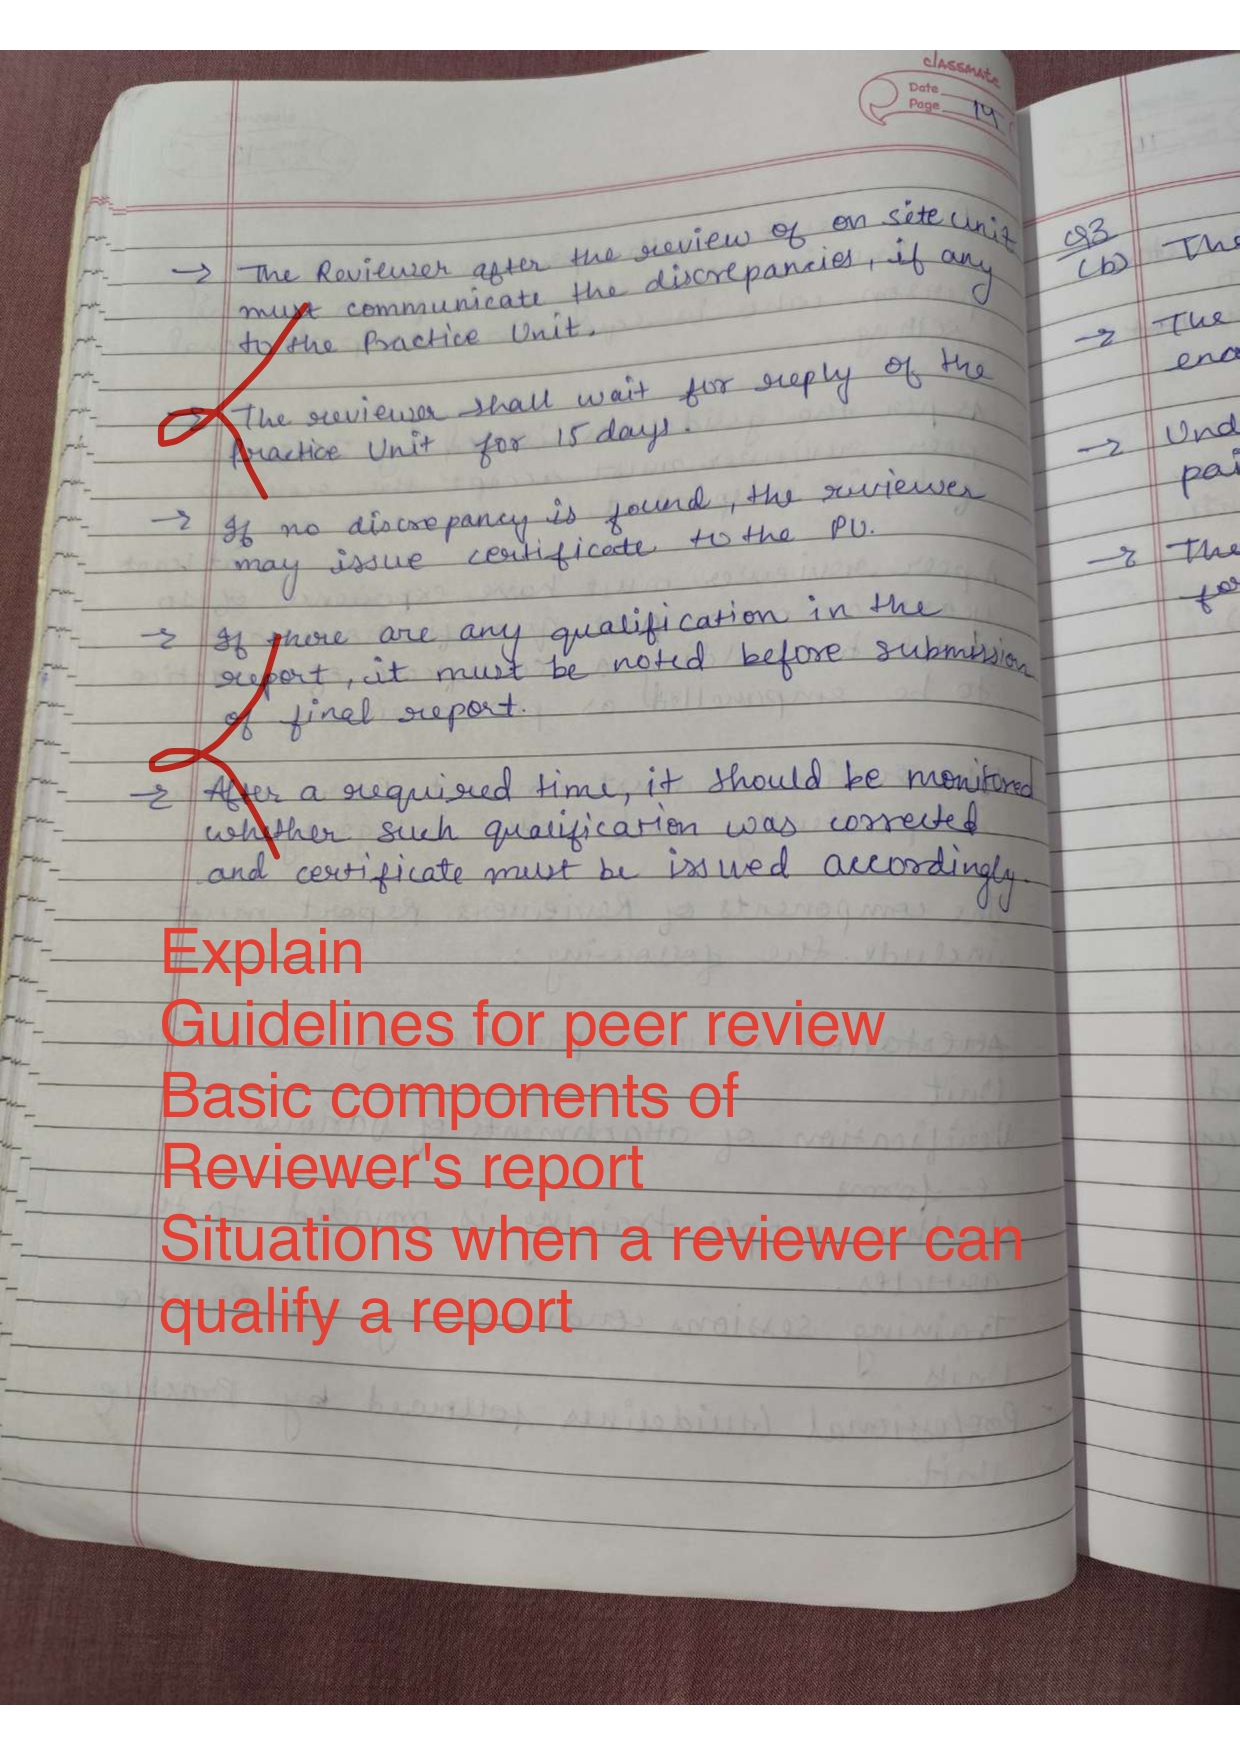 classmate
Date
Page 14
→ The Reviewer after the review of on site unit
must communicate the discrepancies, if any
to the Practice Unit.
→ The reviewer shall wait for reply of the
Practice Unit for 15 days.
→ If no discrepancy is found, the reviewer
may issue certificate to the PU.
→ If there are any qualification in the
report, it must be noted before submission
of final report.
→ After a required time, it should be monitored
whether such qualification was corrected
and certificate must be issued accordingly.
Explain
Guidelines for peer review
Basic components of
Reviewer's report
Situations when a reviewer can
qualify a report
Q3
(b) The
→ The
→ Und
→ The